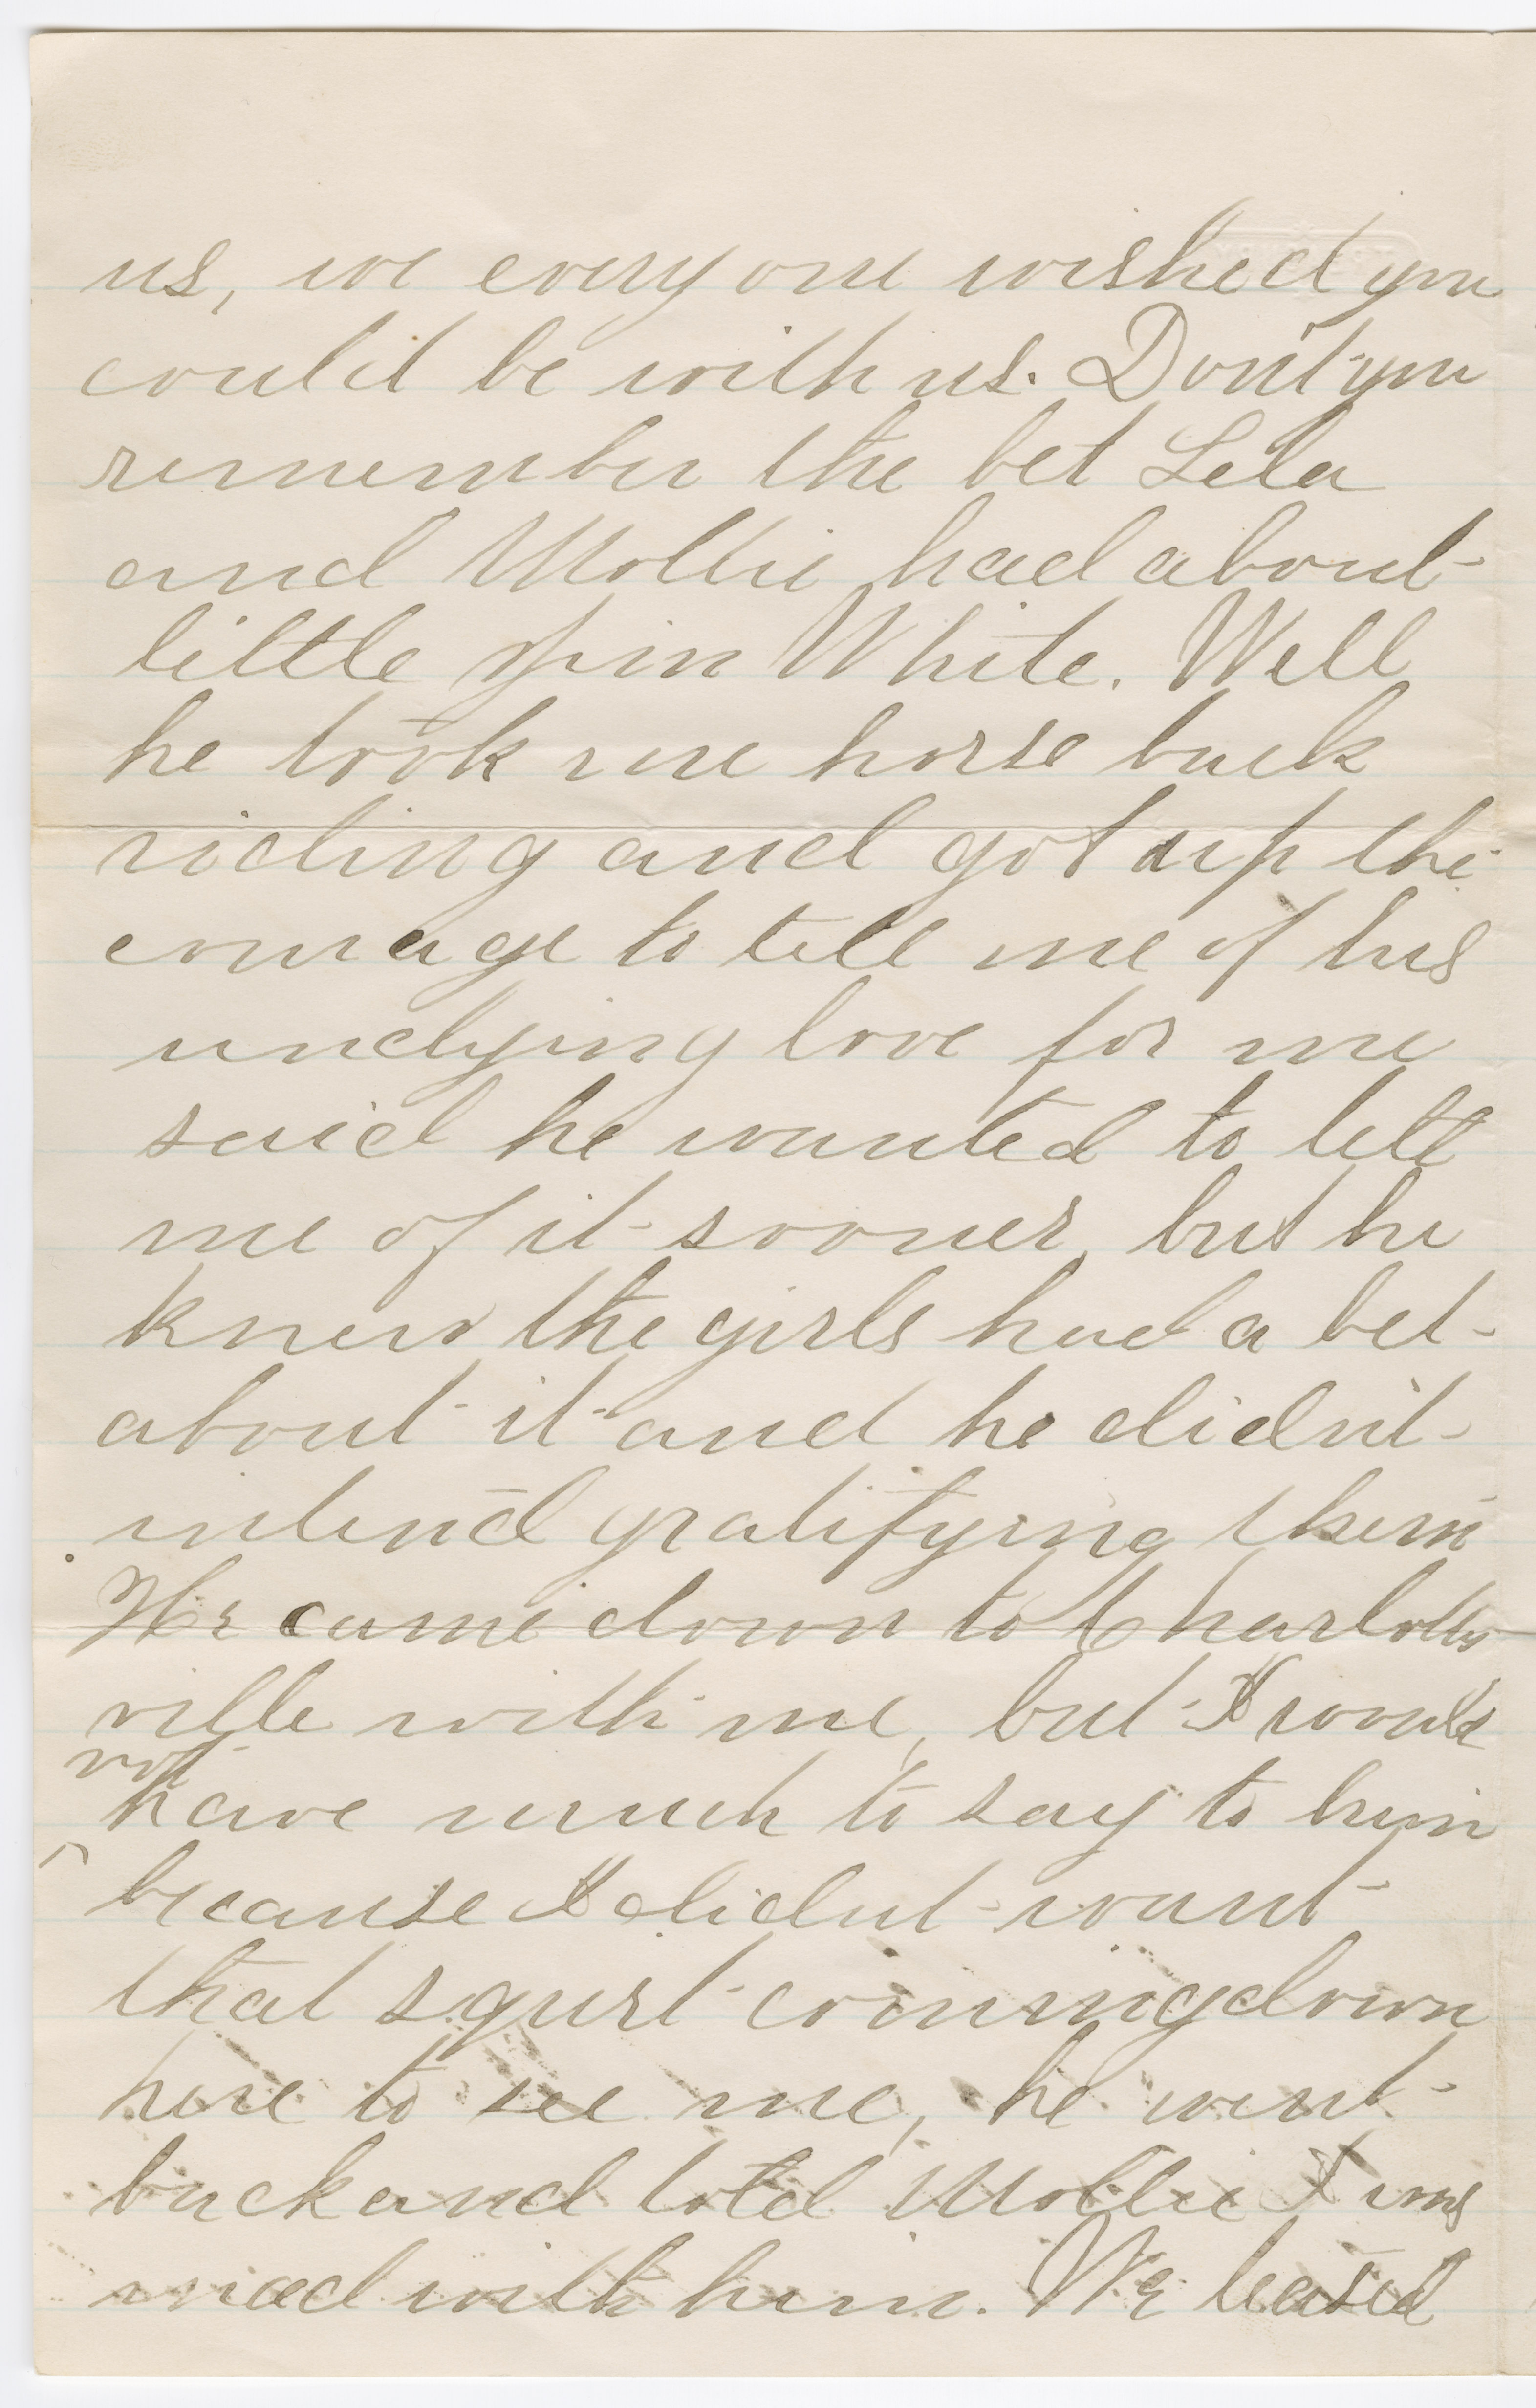 us, we every one wished you
could be with us. Don't you
remember the bet Lela
and Mollie had about
little Jim White. Well
he took me horse back
riding and got up the
courage to tell me of his
undying love for me
said he wanted to tell
me of it sooner, but he
knew the girls had a bet
about it and he didn't
intend gratifying them
He came down to Charlottes
ville with me, but I would
not
have much to say to him
because I didn't want
that squirt coming down
here to see me, he went
back and told Mollie I was
mad with him. We teased